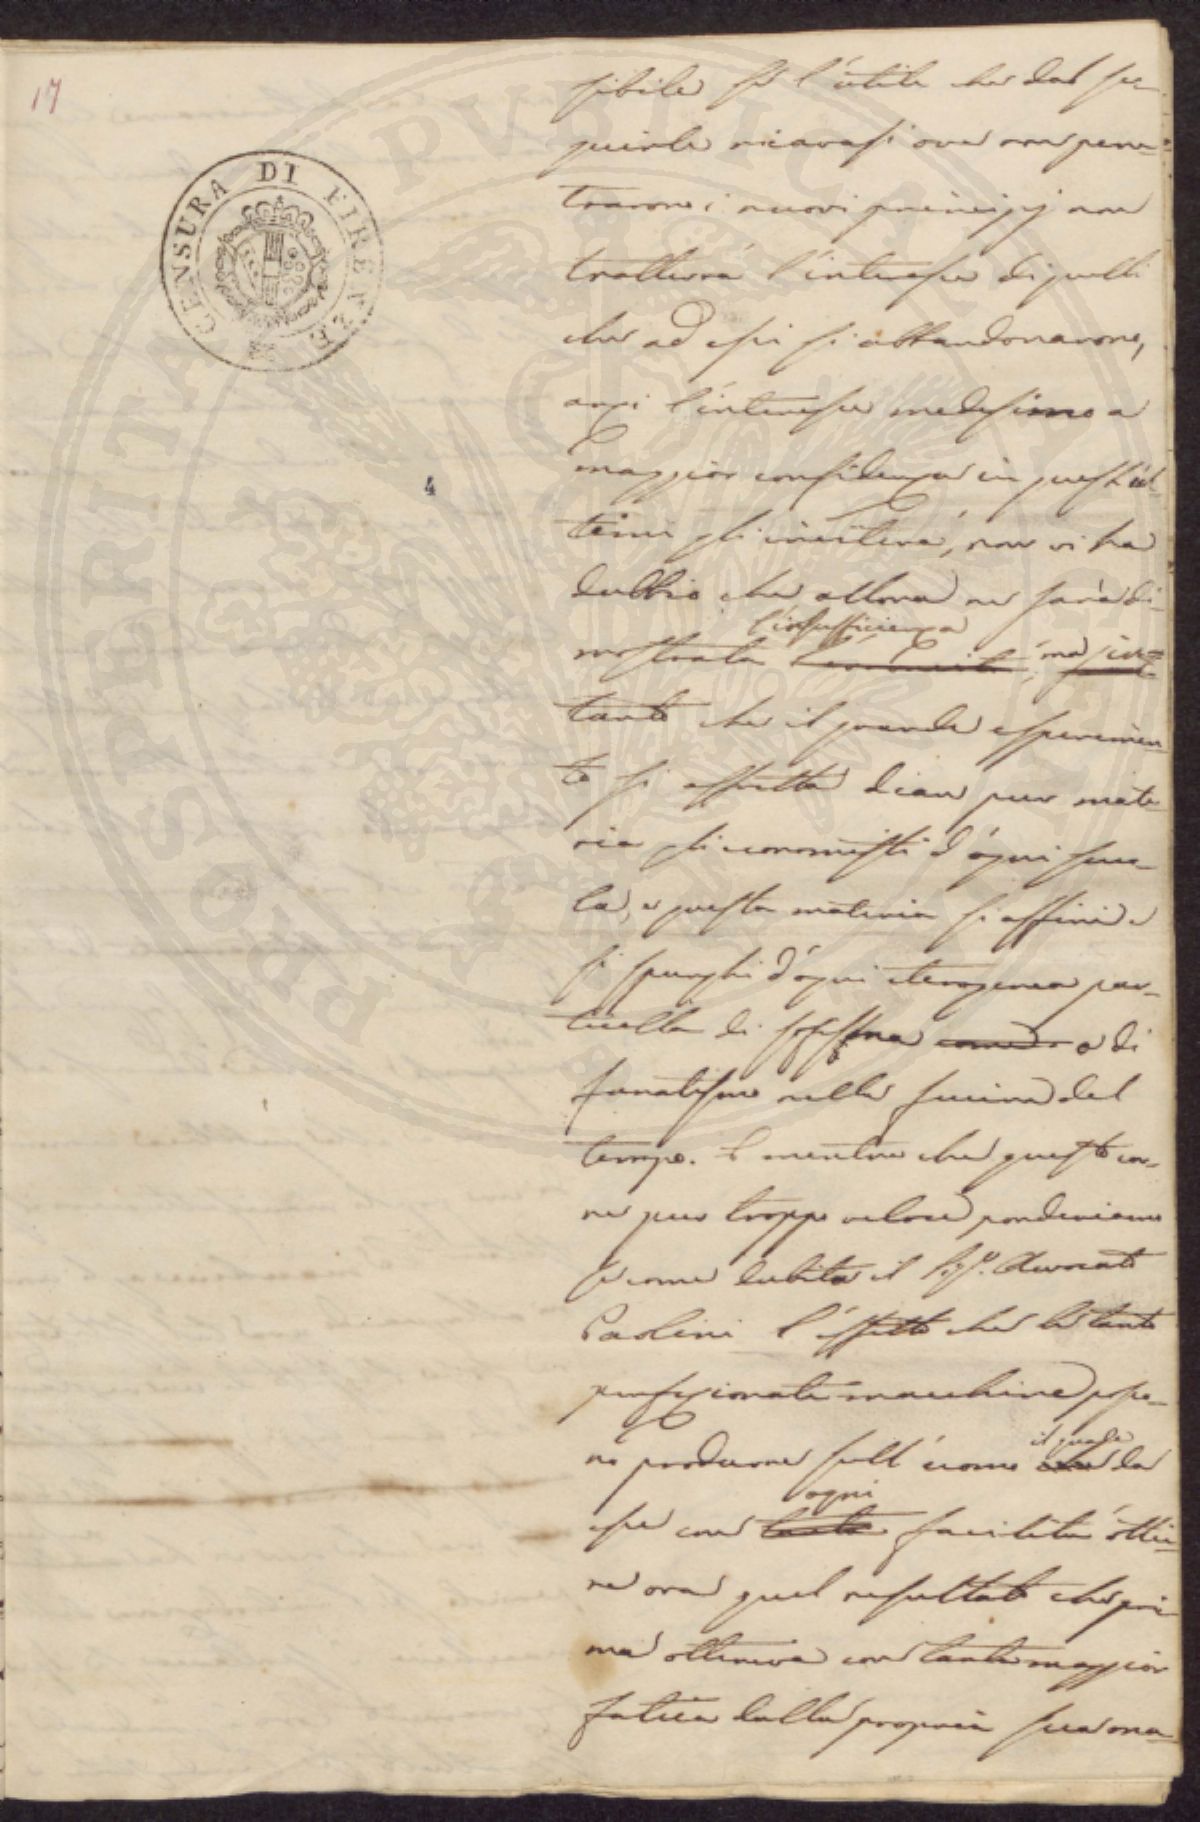 17
CENSURA DI FIRENZE
4
PROSPERITAS PVBLICA
sibile fù l'utile che dal se-
guirle ricavasi ove non pene-
trarono i nuovi principj non
tratterà l'interesse di quelli
che ad essi si abbandonarono,
anzi l'interesse medesimo a
maggior confidenza in quest'ul-
timi gl'inviterà, non vi ha
dubbio che allora ne sarà di-
l'insufficienza
mostrata ma in-
tanto che il grande esperimen-
to si affretta dian pur mate-
ria gli economisti d'ogni scuo-
la, e questa materia si affini e
si spurghi d'ogni eterogenea par-
ticella di sofisma o di
fanatismo nella fucina del
tempo. E mentre che questo cor-
re pur troppo veloce ponderiamo
se come dubita il Sigr. Avvocato
Paolini l'effetto che le tanto
perfezionate macchine posso-
il quale
no produrre sull'uomo da
ogni
esse con facilità ottie-
ne ora quel resultato che pri-
ma otteneva con tanta maggior
fatica dalla propria sua ma-